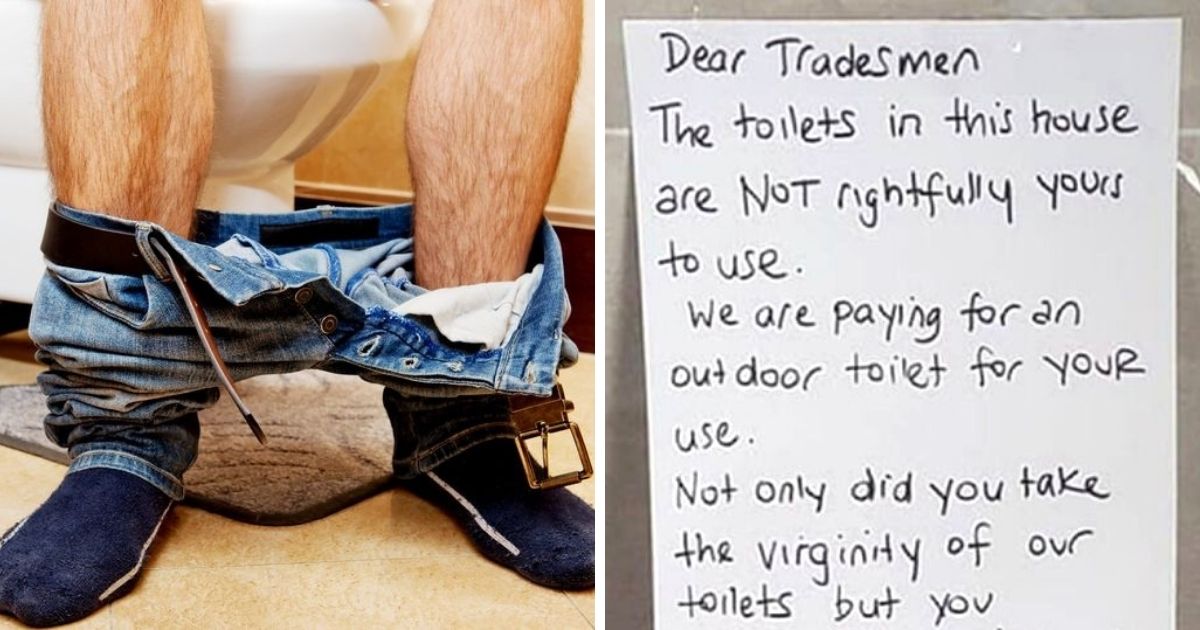 Dear Tradesmen
The toilets in this house
are NOT rightfully yours
to use.
We are paying for an
outdoor toilet for YOUR
use.
Not only did you take
the virginity of our
toilets but you